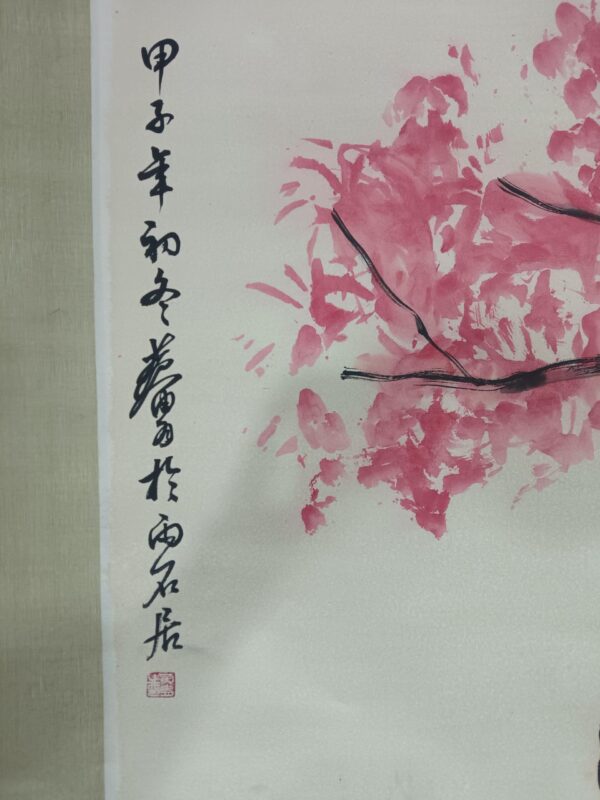 甲子年初冬黄胄於雨石居